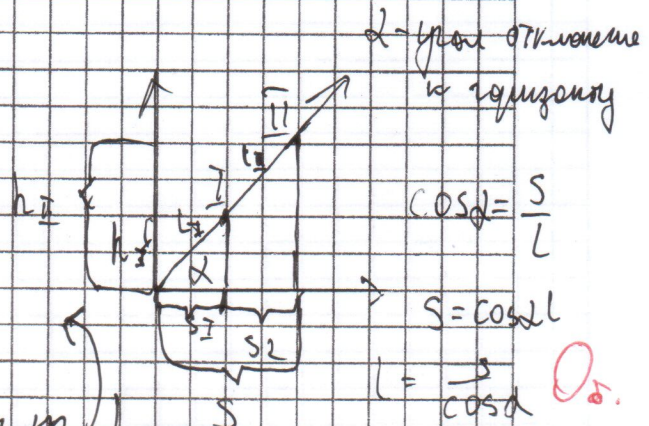 α - угол отклонение
к горизонту
II
l II
h II
I
l I
h I
α
cosα = S/l
S I
S2
S = cosα l
l = s/cosα
0 б.
S